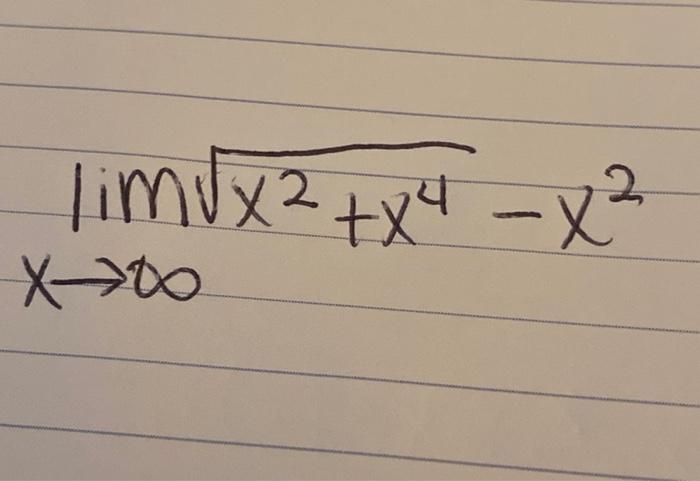 lim √x² + x⁴ - x²
x→∞